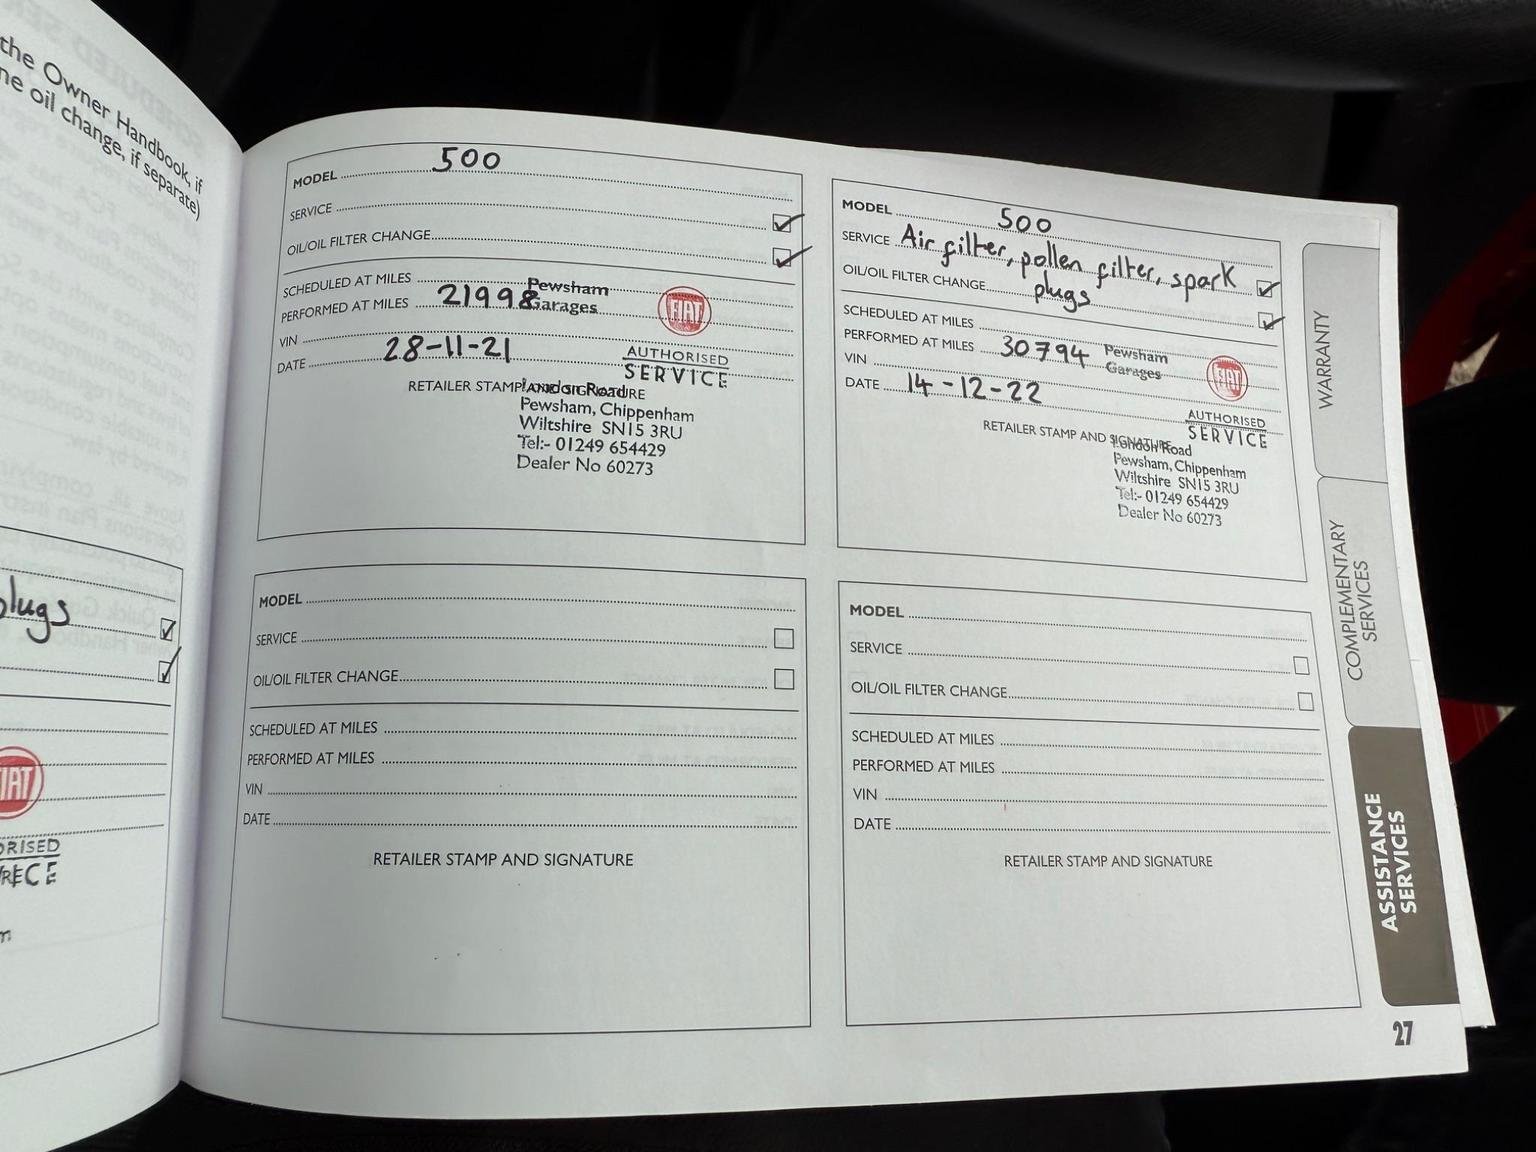 the Owner Handbook, if
ne oil change, if separate)
plugs
FIAT
MODEL 500
SERVICE
OIL/OIL FILTER CHANGE
SCHEDULED AT MILES
PERFORMED AT MILES 21998
VIN
DATE 28-11-21
Pewsham
Garages
FIAT
AUTHORISED
SERVICE
RETAILER STAMP AND SIGNATURE
London Road
Pewsham, Chippenham
Wiltshire SN15 3RU
Tel:- 01249 654429
Dealer No 60273
MODEL 500
SERVICE Air filter, pollen filter, spark
plugs
OIL/OIL FILTER CHANGE
SCHEDULED AT MILES
PERFORMED AT MILES 30794
VIN
DATE 14-12-22
Pewsham
Garages
FIAT
AUTHORISED
SERVICE
RETAILER STAMP AND SIGNATURE
London Road
Pewsham, Chippenham
Wiltshire SN15 3RU
Tel:- 01249 654429
Dealer No 60273
MODEL
SERVICE
OIL/OIL FILTER CHANGE
SCHEDULED AT MILES
PERFORMED AT MILES
VIN
DATE
RETAILER STAMP AND SIGNATURE
MODEL
SERVICE
OIL/OIL FILTER CHANGE
SCHEDULED AT MILES
PERFORMED AT MILES
VIN
DATE
RETAILER STAMP AND SIGNATURE
WARRANTY
COMPLEMENTARY
SERVICES
ASSISTANCE
SERVICES
27